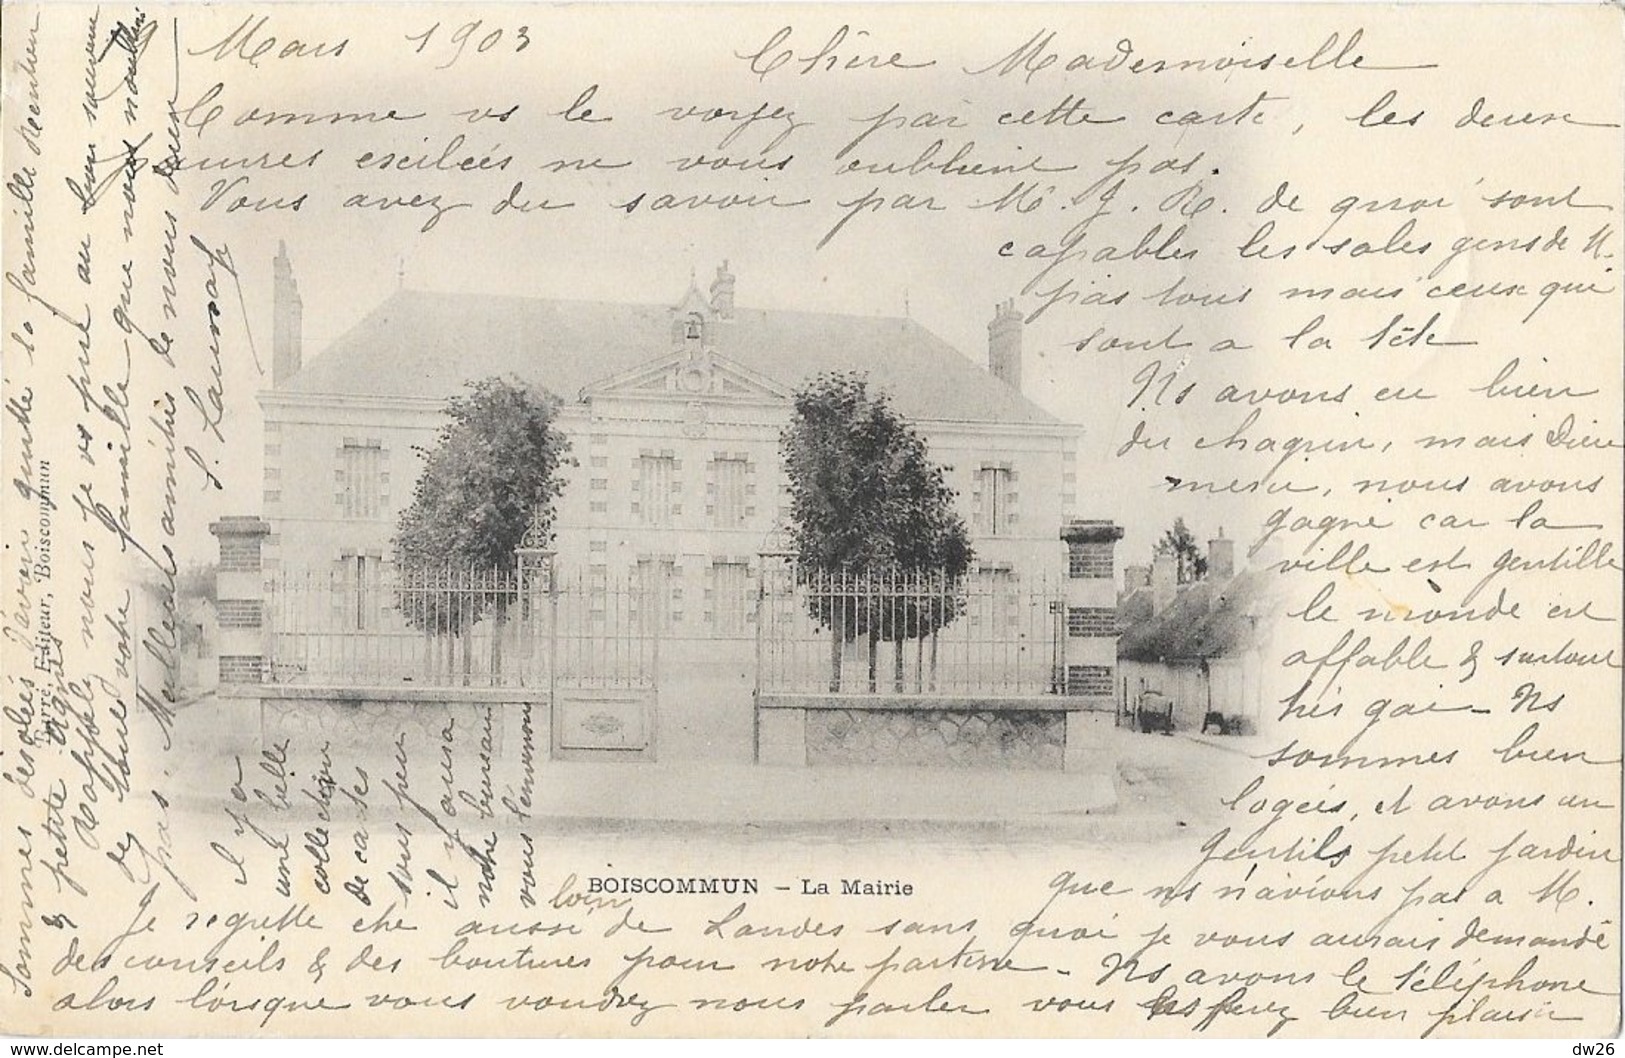 9 Mars 1903 Chère Mademoiselle
Comme vs le voyez par cette carte, les deux
pauvres exilées ne vous oublient pas.
Vous avez du savoir par M. J. R. de quoi sont
capables les sales gens de M.
pas tous mais ceux qui
sont a la tête
Ns avons eu bien
du chagrin, mais Dieu
merci, nous avons
gagné car la
ville est gentille
le monde est
affable & surtout
très gai - Ns
sommes bien
logées, et avons un
gentils petit jardin
que ns n'avions pas a M.
Je regrette etre aussi loin de Landes sans quoi je vous aurais demandé
des conseils & des boutures pour notre parterre - Ns avons le téléphone
alors lorsque vous voudrez nous parler vous ns ferez bien plaisir
il y a
une belle
collection
de cartes
sous peu
il y aura
notre bureau
vous l'enverrons
BOISCOMMUN - La Mairie
Barré, Editeur, Boiscommun
Sommes désolées d'avoir quitté la famille
& petite Agnès
Rappelez nous je vs prie au bon souvenir
de toute votre famille que nous n'oublions
pas. Meilleures amitiés de nous deux
S. Launay
dw26